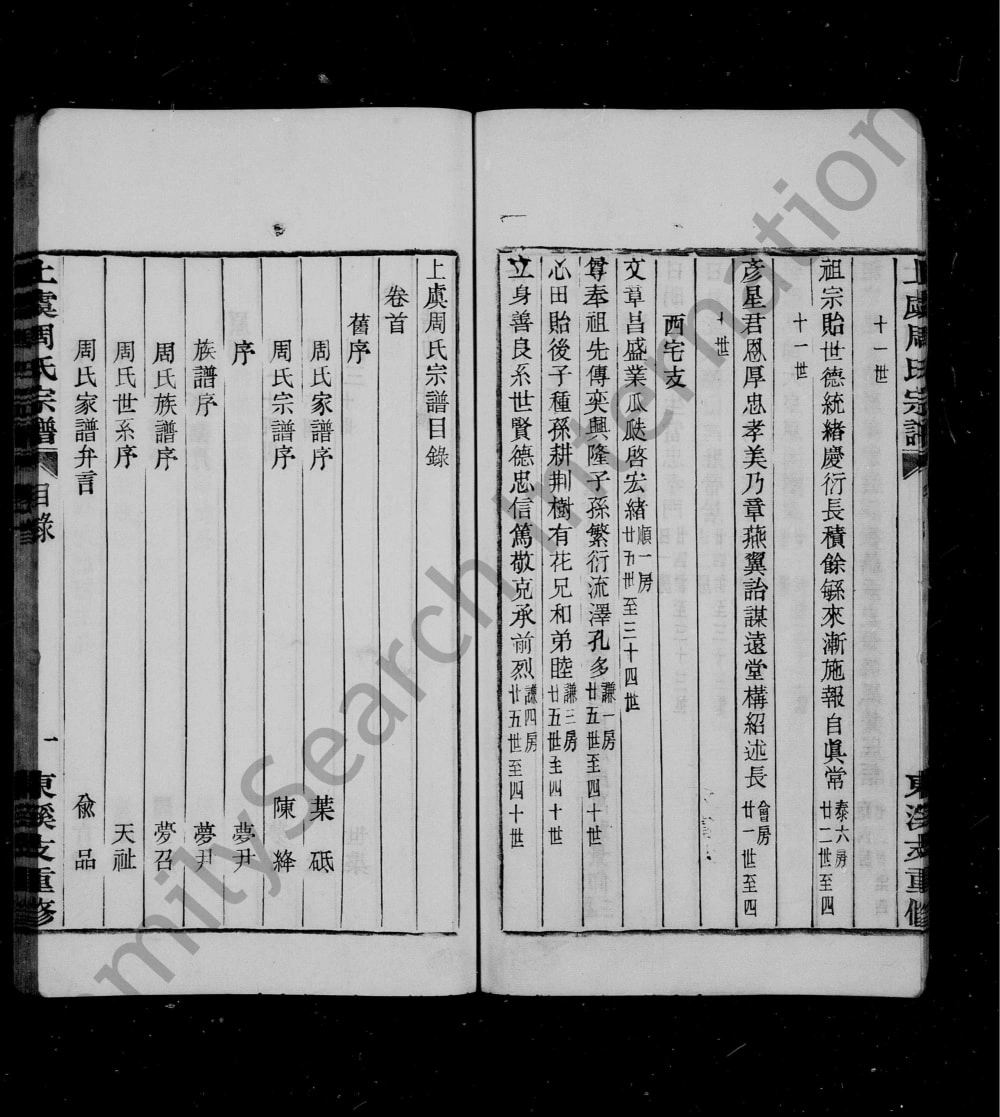 上虞周氏宗譜
十一世
祖宗貽世德統緒慶衍長積餘緜來漸施報自眞常泰六房廿二世至四
十一世
彥星君恩厚忠孝美乃章燕翼詒謀遠堂構紹述長會房廿一世至四
十世
西宅支
文章昌盛業瓜瓞啓宏緒順一房廿五世至三十四世
尊奉祖先傳奕興隆子孫繁衍流澤孔多謙一房廿五世至四十世
心田貽後子種孫耕荆樹有花兄和弟睦謙三房廿五世至四十世
立身善良系世賢德忠信篤敬克承前烈謙四房廿五世至四十世
東溪支重修
上虞周氏宗譜目錄
卷首
舊序
周氏家譜序 葉砥
周氏宗譜序 陳絳
序 夢尹
族譜序 夢尹
周氏族譜序 夢召
周氏世系序 天祉
周氏家譜弁言 俞品
上虞周氏宗譜 目錄 一 東溪支重修
FamilySearch International